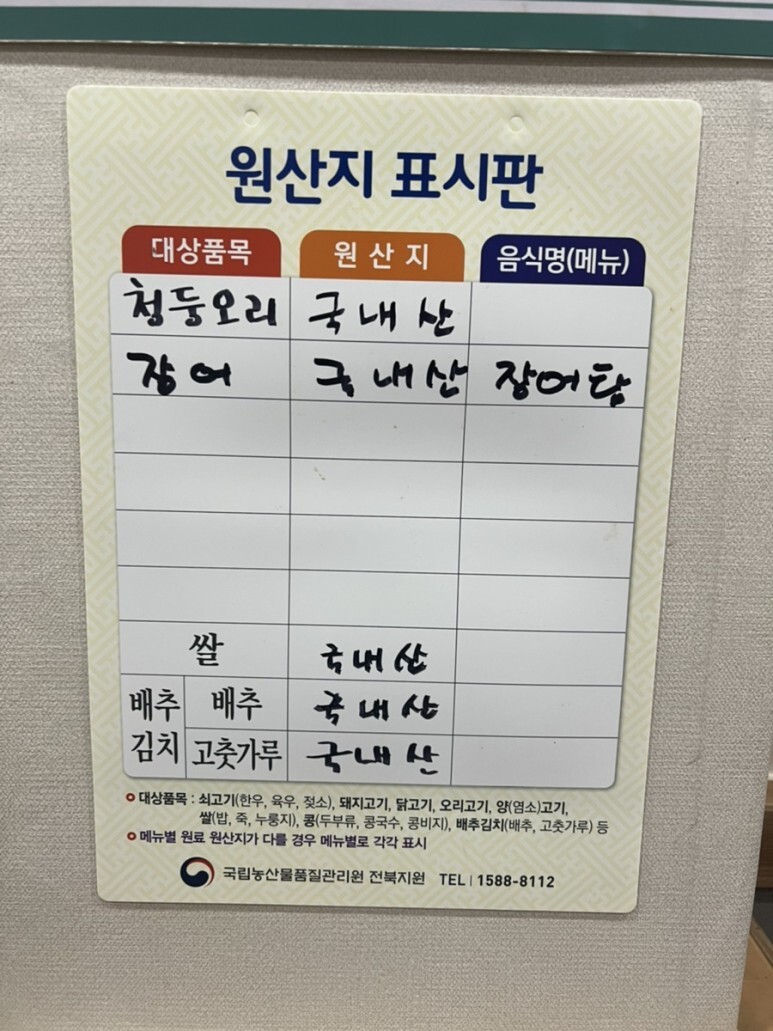 원산지 표시판
대상품목 원산지 음식명(메뉴)
청둥오리 국내산
장어 국내산 장어탕
쌀 국내산
배추김치 배추 국내산
고춧가루 국내산
대상품목 : 쇠고기(한우, 육우, 젖소), 돼지고기, 닭고기, 오리고기, 양(염소)고기,
쌀(밥, 죽, 누룽지), 콩(두부류, 콩국수, 콩비지), 배추김치(배추, 고춧가루) 등
메뉴별 원료 원산지가 다를 경우 메뉴별로 각각 표시
국립농산물품질관리원 전북지원 TEL | 1588-8112